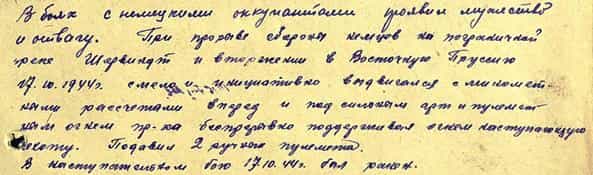 В боях с немецкими оккупантами проявил мужество
и отвагу. При прорыве обороны немцев на пограничной
реке Шервиндт и вторжении в Восточную Пруссию
17.10.1944г. смело и инициативно выдвигался с миномет-
ными рассчетами вперед и под сильным арт и пулемет-
ным огнем пр-ка беспрерывно поддерживал огнем наступающую
пехоту. Подавил 2 ручных пулемета.
В наступательном бою 17.10.44г. был ранен.